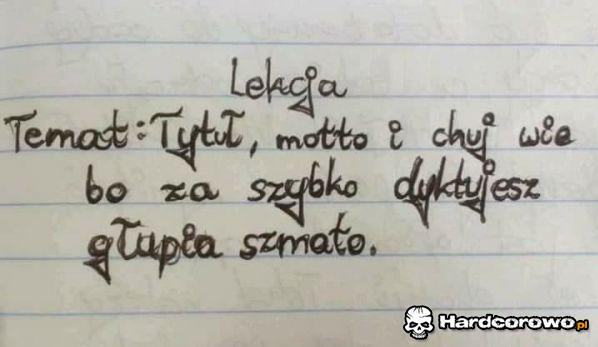 Lekcja
Temat: Tytuł, motto i chuj wie
bo za szybko dyktujesz
głupia szmato.
Hardcorowo.pl